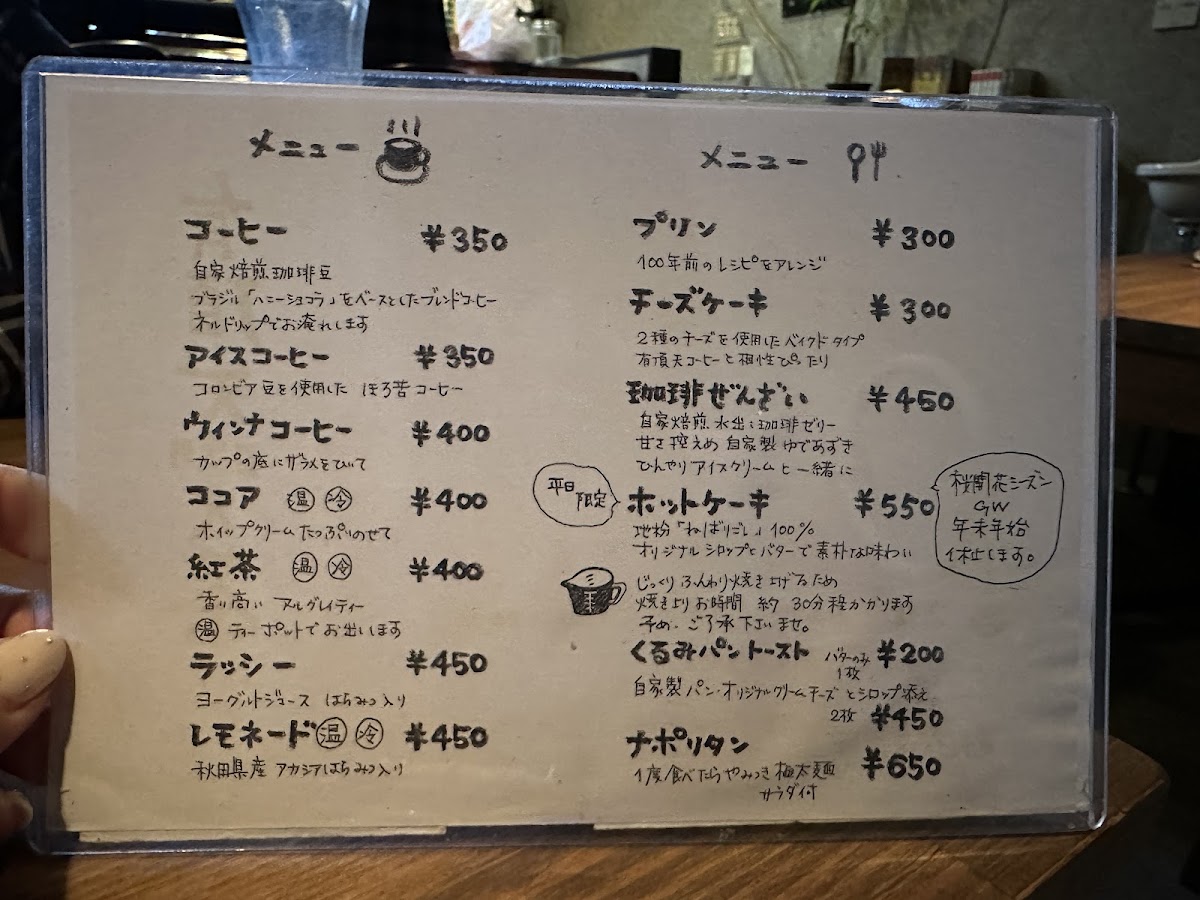 メニュー
コーヒー ¥350
自家焙煎珈琲豆
ブラジル「ハニーショコラ」をベースとしたブレンドコーヒー
ネルドリップでお淹れします
アイスコーヒー ¥350
コロンビア豆を使用した ほろ苦コーヒー
ウィンナコーヒー ¥400
カップの底にザラメをひいて
ココア 温 冷 ¥400
ホイップクリームたっぷりのせて
紅茶 温 冷 ¥400
香り高い アールグレイティー
温 ティーポットでお出しします
ラッシー ¥450
ヨーグルトジュース はちみつ入り
レモネード 温 冷 ¥450
秋田県産 アカシアはちみつ入り
メニュー
プリン ¥300
100年前のレシピをアレンジ
チーズケーキ ¥300
2種のチーズを使用したベイクドタイプ
有頂天コーヒーと相性ぴったり
珈琲ぜんざい ¥450
自家焙煎 水出し珈琲ゼリー
甘さ控えめ 自家製 ゆであずき
ひんやりアイスクリームと一緒に
平日
限定
ホットケーキ ¥550
地粉「ねばりごし」100%
オリジナルシロップとバターで素朴な味わい
桜開花シーズン
GW
年末年始
休止します。
じっくりふんわり焼き上げるため
焼き上りお時間 約 30分程かかります
予めご了承下さいませ。
くるみパントースト バターのみ 1枚 ¥200
自家製パン・オリジナルクリームチーズとシロップ添え
2枚 ¥450
ナポリタン ¥650
1度食べたらやみつき 極太麺
サラダ付